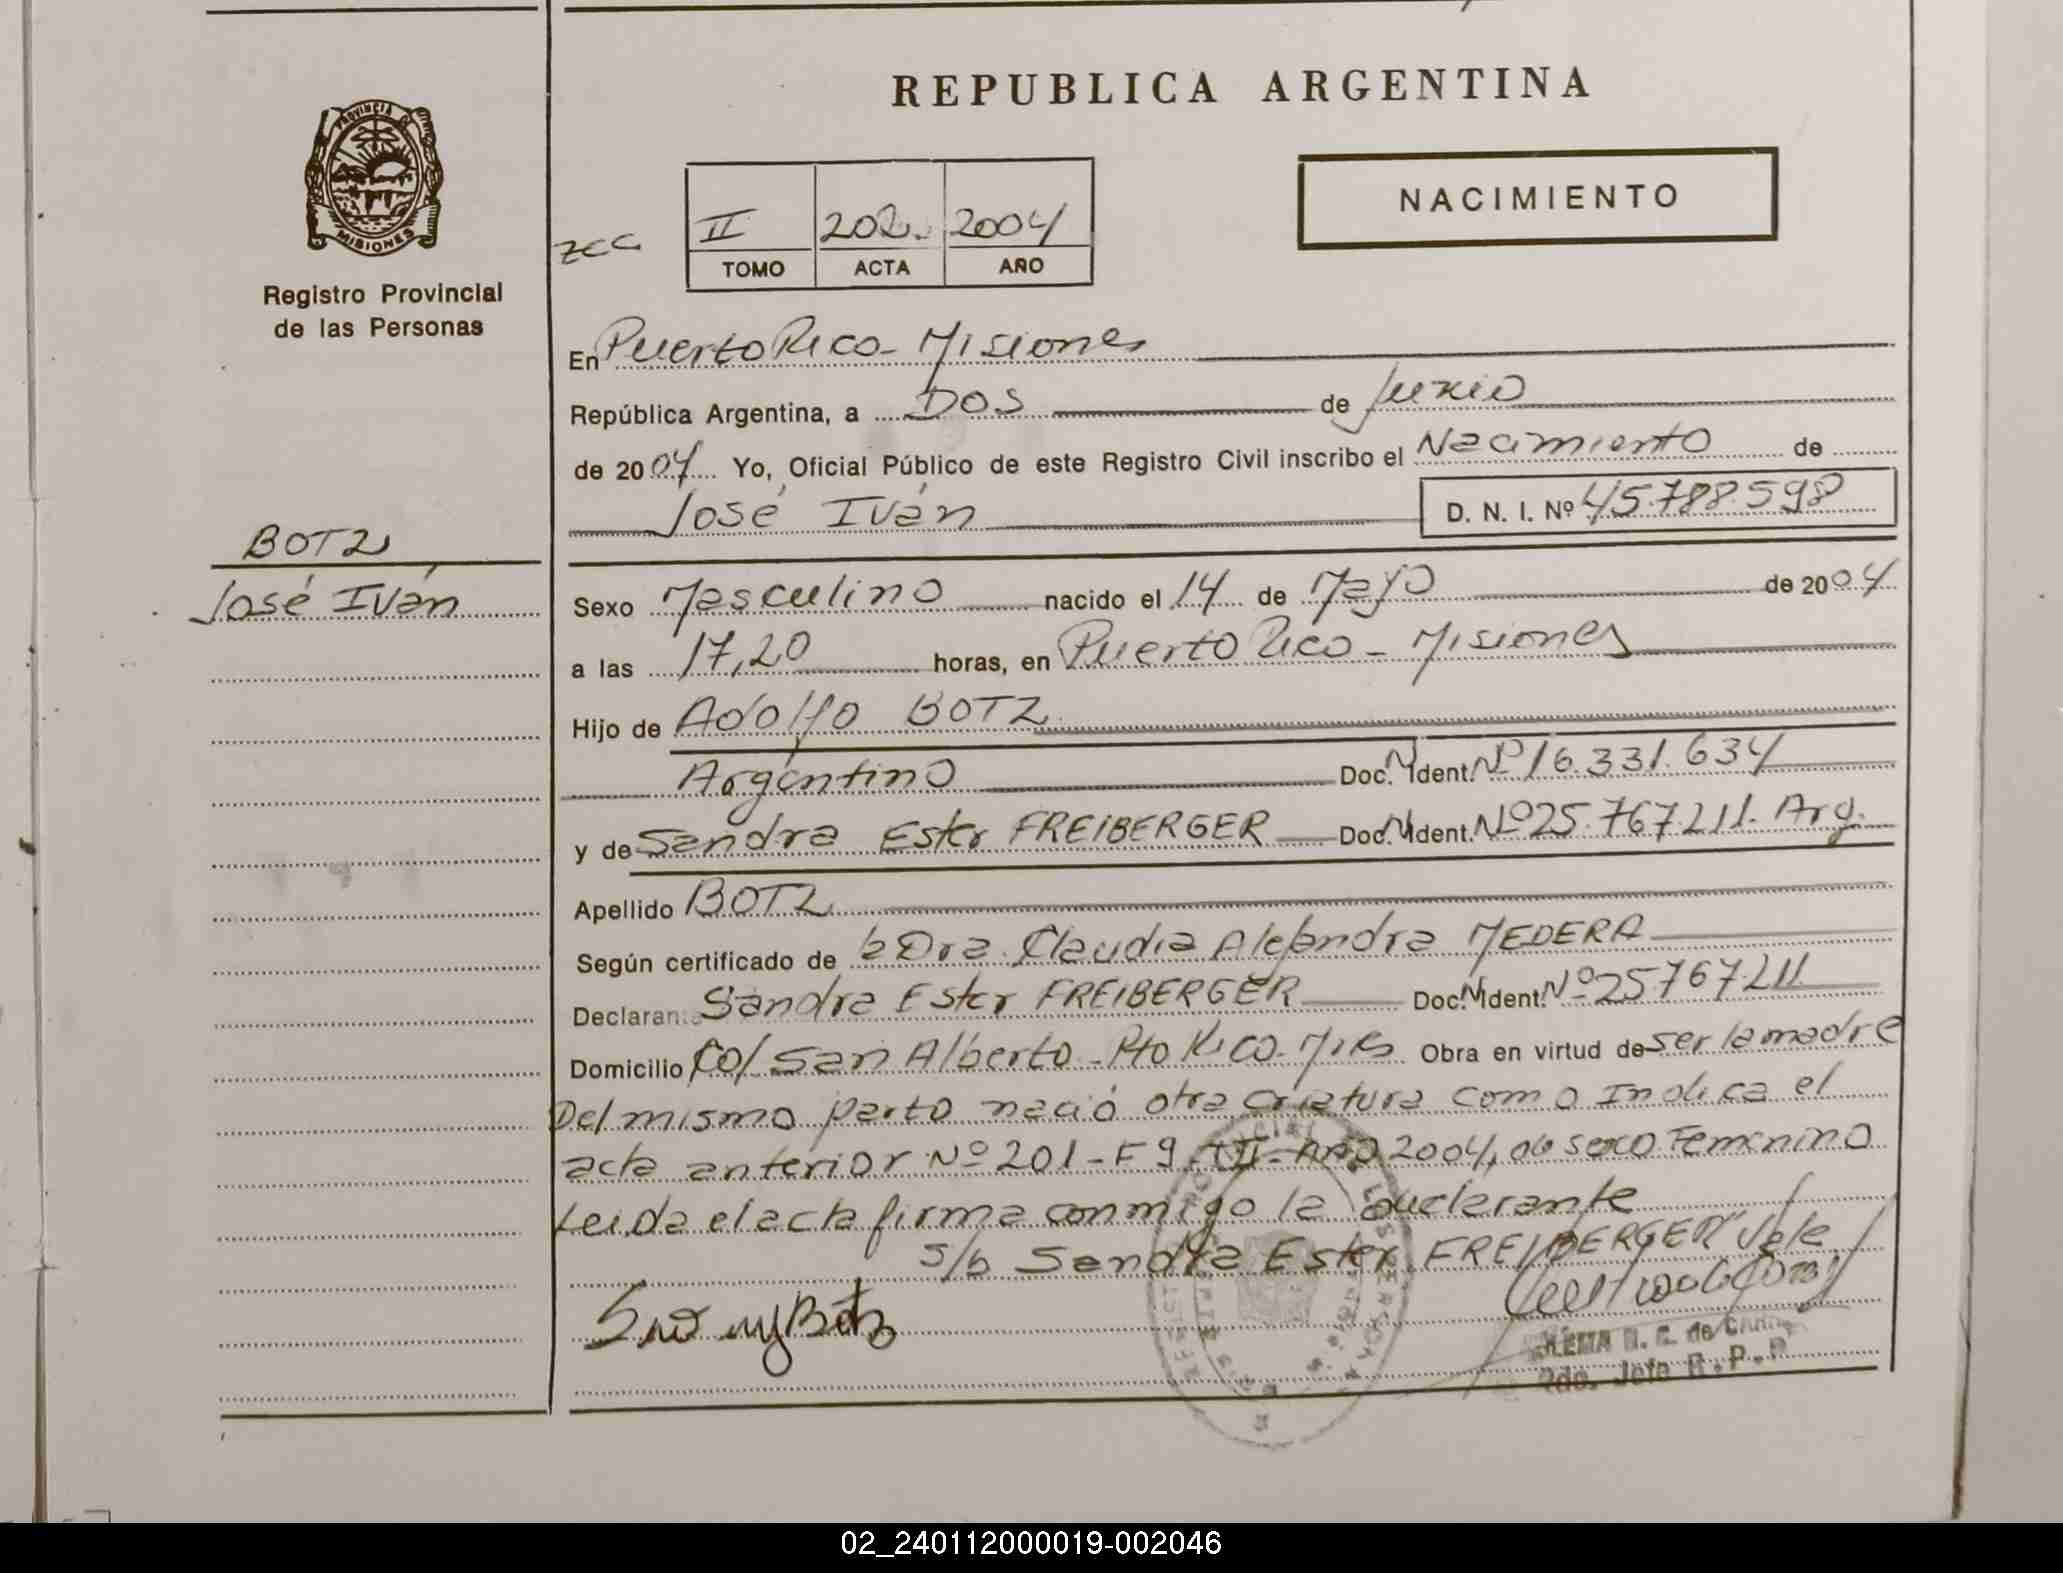 REPUBLICA ARGENTINA
PROVINCIA DE
MISIONES
Registro Provincial
de las Personas
NACIMIENTO
II 202 2004
TOMO ACTA AÑO
En Puerto Rico - Misiones
República Argentina, a Dos de Junio
de 2004 Yo, Oficial Público de este Registro Civil inscribo el Nacimiento de
José Iván D. N. I. Nº 45.788.598
BOTZ
José Iván
Sexo Masculino nacido el 14 de Mayo de 2004
a las 17,20 horas, en Puerto Rico - Misiones
Hijo de Adolfo BOTZ
Argentino Doc. N. Ident. Nº 16.331.634
y de Sandra Ester FREIBERGER Doc. N. Ident. Nº 25.767.211. Arg.
Apellido BOTZ
Según certificado de la Dra. Claudia Alejandra MEDERA
Declarante Sandra Ester FREIBERGER Doc. N. Ident. Nº 25.767.211
Domicilio Col San Alberto - Pto Rico - Mis Obra en virtud de ser la madre
Del mismo parto nació otra criatura como Indica el
acta anterior Nº 201 - Fº T II - Año 2004, de sexo Femenino
Leida el acta firma conmigo la declarante
S/b Sandra Ester FREIBERGER Vale
R. C. de
2do. Jefe R.P.P.
02_240112000019-002046